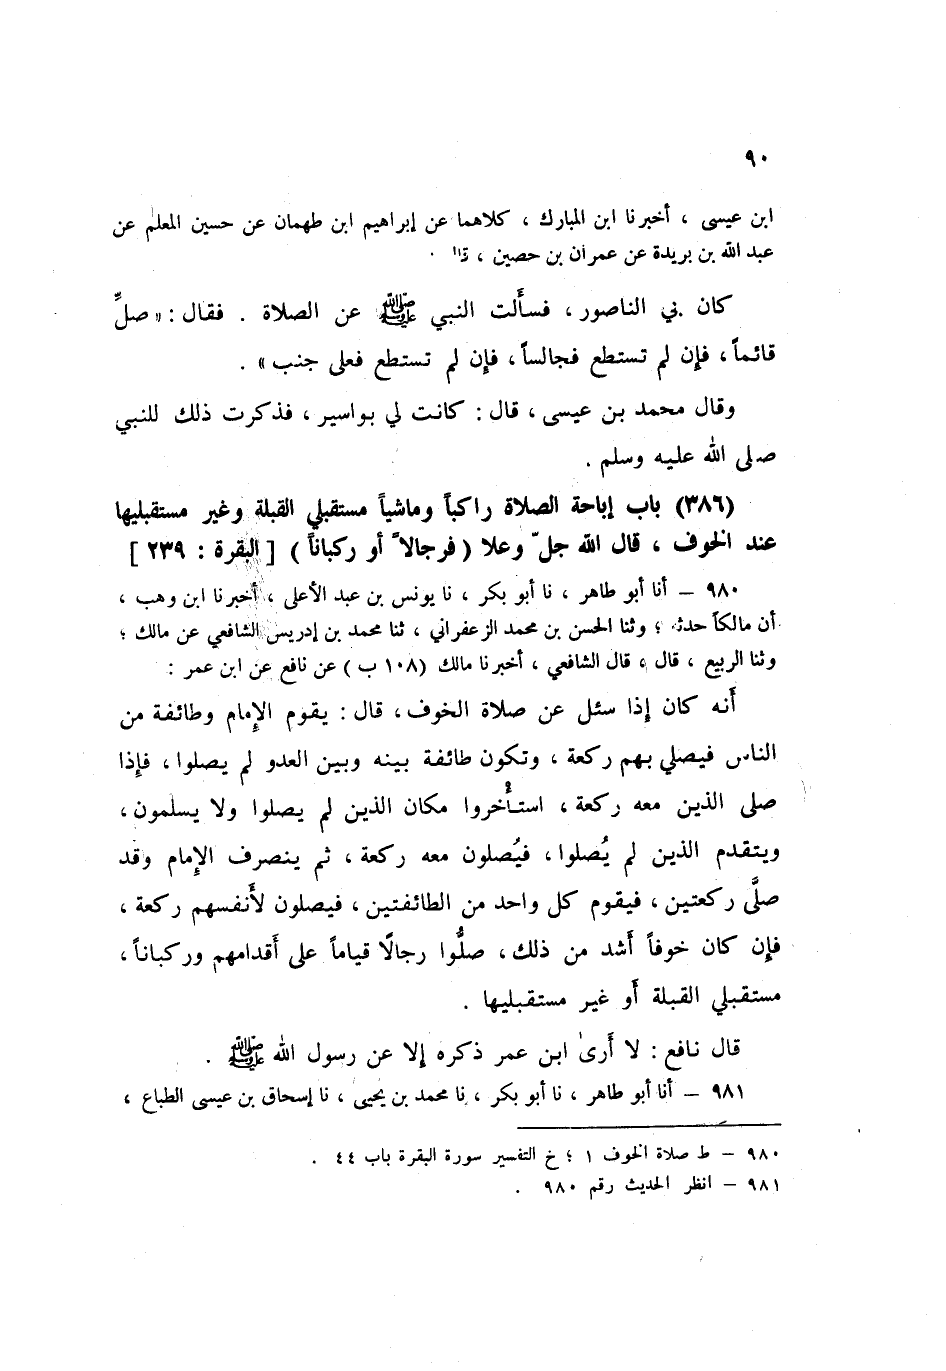 ٩٠
ابن عيسى ، أخبرنا ابن المبارك ، كلاهما عن إبراهيم ابن طهمان عن حسين المعلم عن
عبد الله بن بريدة عن عمران بن حصين ،
كان بي الناصور ، فسألت النبي ﷺ عن الصلاة . فقال : « صلِّ
قائماً ، فإن لم تستطع فجالساً ، فإن لم تستطع فعلى جنب » .
وقال محمد بن عيسى ، قال : كانت لي بواسير ، فذكرت ذلك للنبي
صلى الله عليه وسلم .
(٣٨٦) باب إباحة الصلاة راكباً وماشياً مستقبلي القبلة وغير مستقبليها
عند الخوف ، قال الله جلّ وعلا ( فرجالاً أو ركباناً ) [ البقرة : ٢٣٩ ]
٩٨٠ – أنا أبو طاهر ، نا أبو بكر ، نا يونس بن عبد الأعلى ، أخبرنا ابن وهب ،
أن مالكاً حدثه ؛ وثنا الحسن بن محمد الزعفراني ، ثنا محمد بن إدريس الشافعي عن مالك ؛
وثنا الربيع ، قال ، قال الشافعي ، أخبرنا مالك (١٠٨ ب ) عن نافع عن ابن عمر :
أنه كان إذا سئل عن صلاة الخوف ، قال : يقوم الإمام وطائفة من
الناس فيصلي بهم ركعة ، وتكون طائفة بينه وبين العدو لم يصلوا ، فإذا
صلى الذين معه ركعة ، استأخروا مكان الذين لم يصلوا ولا يسلمون ،
ويتقدم الذين لم يُصلوا ، فيُصلون معه ركعة ، ثم ينصرف الإمام وقد
صلَّى ركعتين ، فيقوم كل واحد من الطائفتين ، فيصلون لأنفسهم ركعة ،
فإن كان خوفاً أشد من ذلك ، صلُّوا رجالًا قياماً على أقدامهم وركباناً ،
مستقبلي القبلة أو غير مستقبليها .
قال نافع : لا أرى ابن عمر ذكره إلا عن رسول الله ﷺ .
٩٨١ – أنا أبو طاهر ، نا أبو بكر ، نا محمد بن يحيى ، نا إسحاق بن عيسى الطباع ،
٩٨٠ – ط صلاة الخوف ١ ؛ خ التفسير سورة البقرة باب ٤٤ .
٩٨١ – انظر الحديث رقم ٩٨٠ .